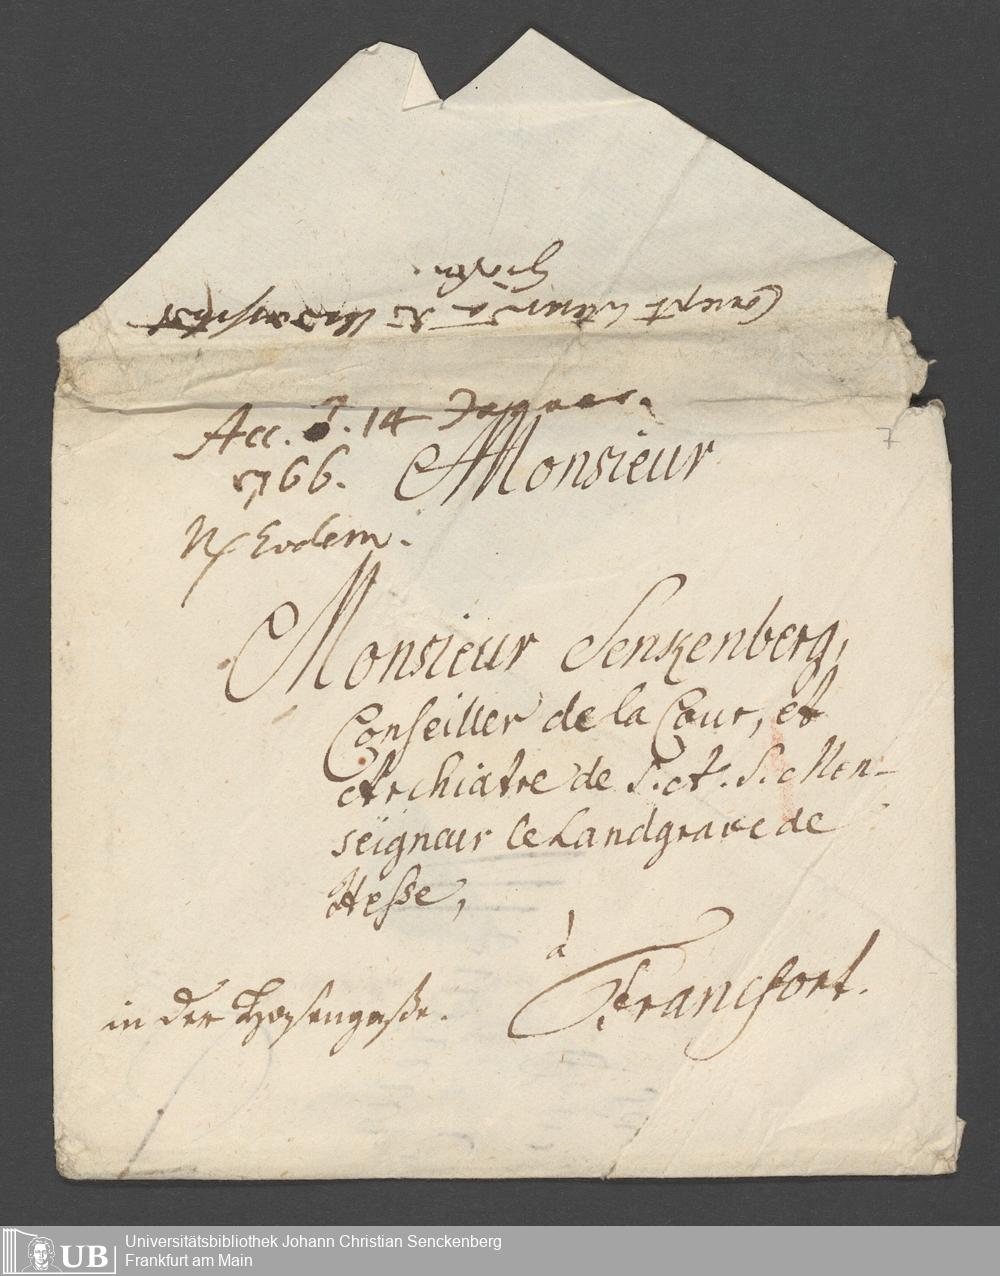 Acc. d. 14 Januar.
1766.
Monsieur
Eodem.
Monsieur Senkenberg,
Conseiller de la Cour, et
Archiatre de S. A. S. Mon-
seigneur le Landgrave de
Hesse,
à
Francfort.
in der Hasengaße.
7
UB Universitätsbibliothek Johann Christian Senckenberg
Frankfurt am Main